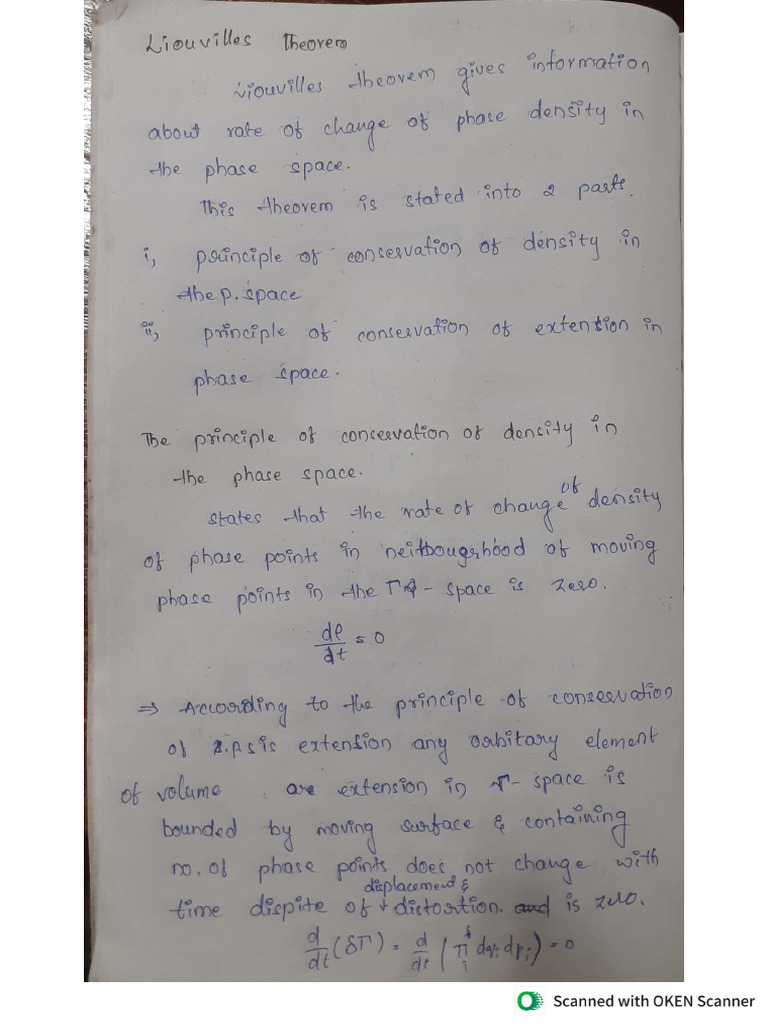 Liouvilles Theorem
Liouvilles theorem gives information
about rate of change of phase density in
the phase space.
This theorem is stated into 2 parts.
i, principle of conservation of density in
the p. space
ii, principle of conservation of extention in
phase space.
The principle of conservation of density in
the phase space.
states that the rate of change of density
of phase points in neitbougrhood of moving
phase points in the Γ - space is zero.
dρ/dt = 0
⇒ According to the principle of conservation
of extension any orbitary element
of volume are extension in Γ - space is
bounded by moving surface & containing
no. of phase points does not change with
displacement &
time dispite of distortion. and is zero.
d/dt (δΓ) = d/dt (π dqi dpi) = 0
Scanned with OKEN Scanner